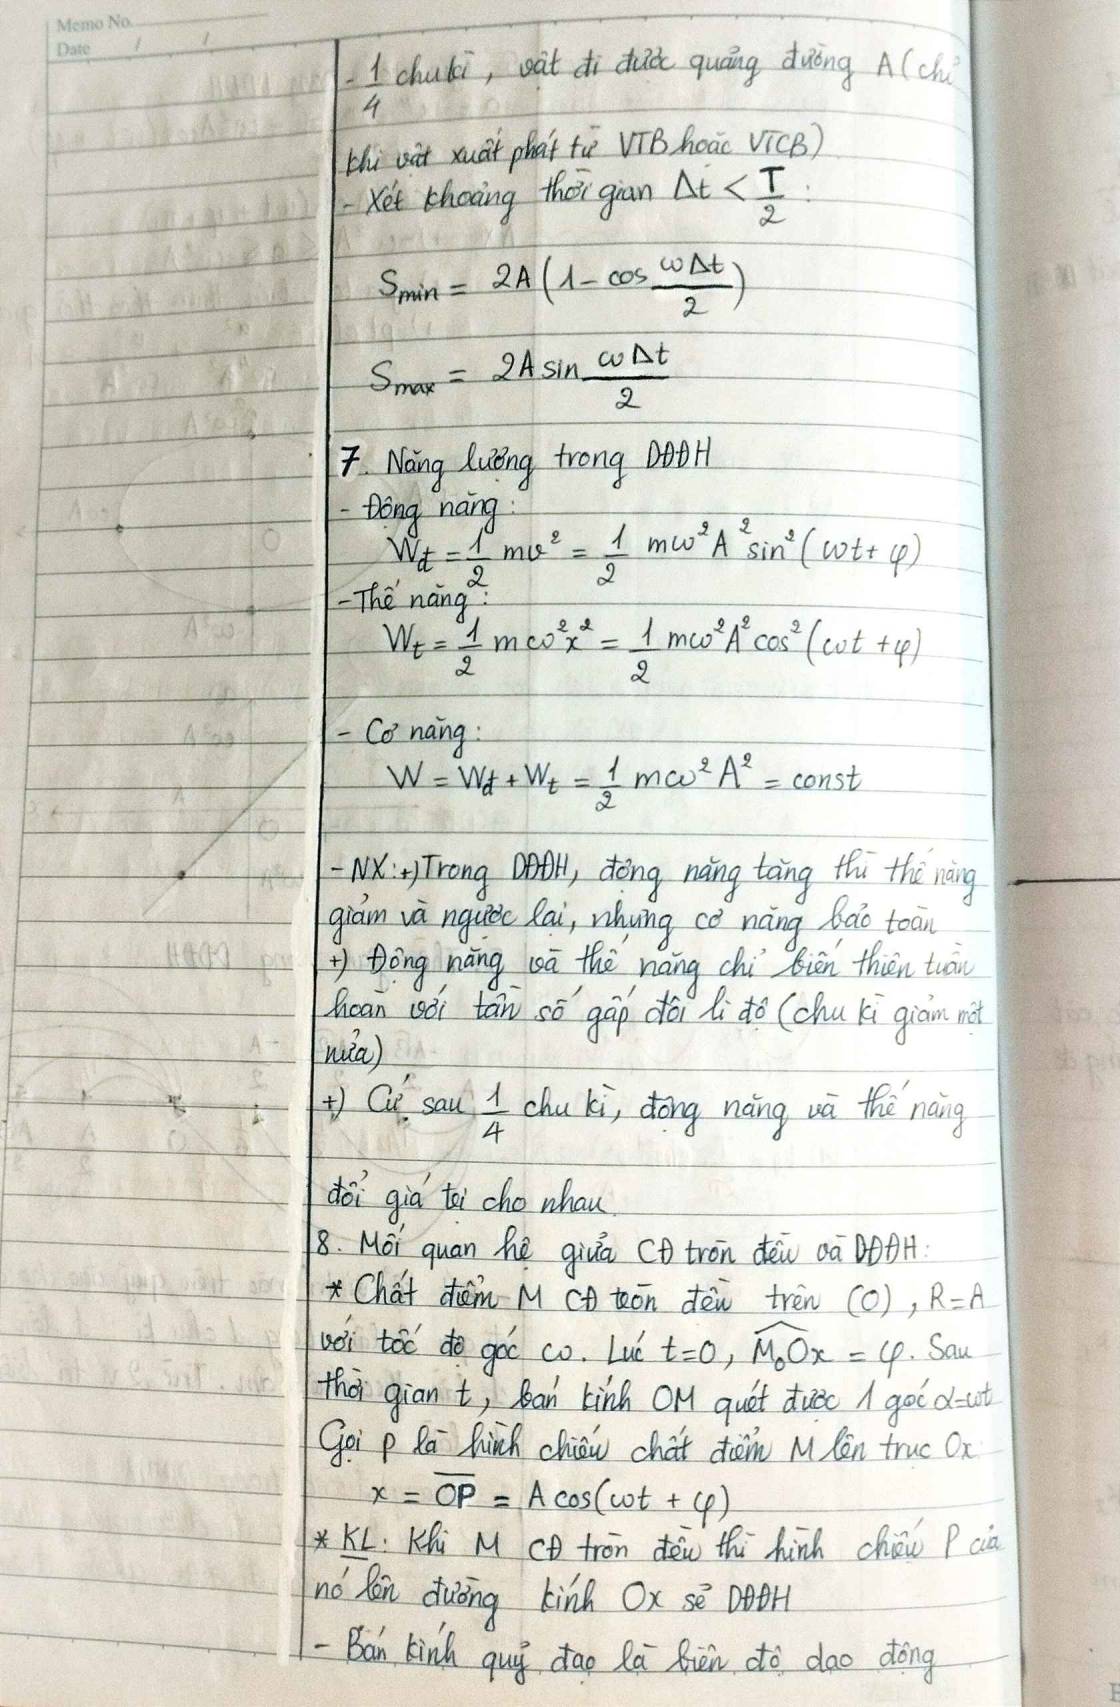 Memo No.
Date / /
- 1/4 chu kì, vật đi được quãng đường A (chỉ
khi vật xuất phát từ VTB hoặc VTCB)
- Xét khoảng thời gian Δt < T/2 :
Smin = 2A(1 - cos ωΔt/2)
Smax = 2A sin ωΔt/2
7. Năng lượng trong DĐĐH
- Động năng:
Wđ = 1/2 mv² = 1/2 mω²A² sin²(ωt + φ)
- Thế năng:
Wt = 1/2 mω²x² = 1/2 mω²A² cos²(ωt + φ)
- Cơ năng:
W = Wđ + Wt = 1/2 mω²A² = const
- NX: +) Trong DĐĐH, động năng tăng thì thế năng
giảm và ngược lại, nhưng cơ năng bảo toàn
+) Động năng và thế năng chỉ biến thiên tuần
hoàn với tần số gấp đôi li độ (chu kì giảm một
nửa)
+) Cứ sau 1/4 chu kì, động năng và thế năng
đổi giá trị cho nhau.
8. Mối quan hệ giữa CĐ tròn đều và DĐĐH:
* Chất điểm M CĐ tròn đều trên (O), R = A
với tốc độ góc ω. Lúc t=0, M₀Ox = φ. Sau
thời gian t, bán kính OM quét được 1 góc α=ωt
Gọi P là hình chiếu chất điểm M lên trục Ox:
x = OP = A cos(ωt + φ)
* KL: Khi M CĐ tròn đều thì hình chiếu P của
nó lên đường kính Ox sẽ DĐĐH
- Bán kính quỹ đạo là biên độ dao động